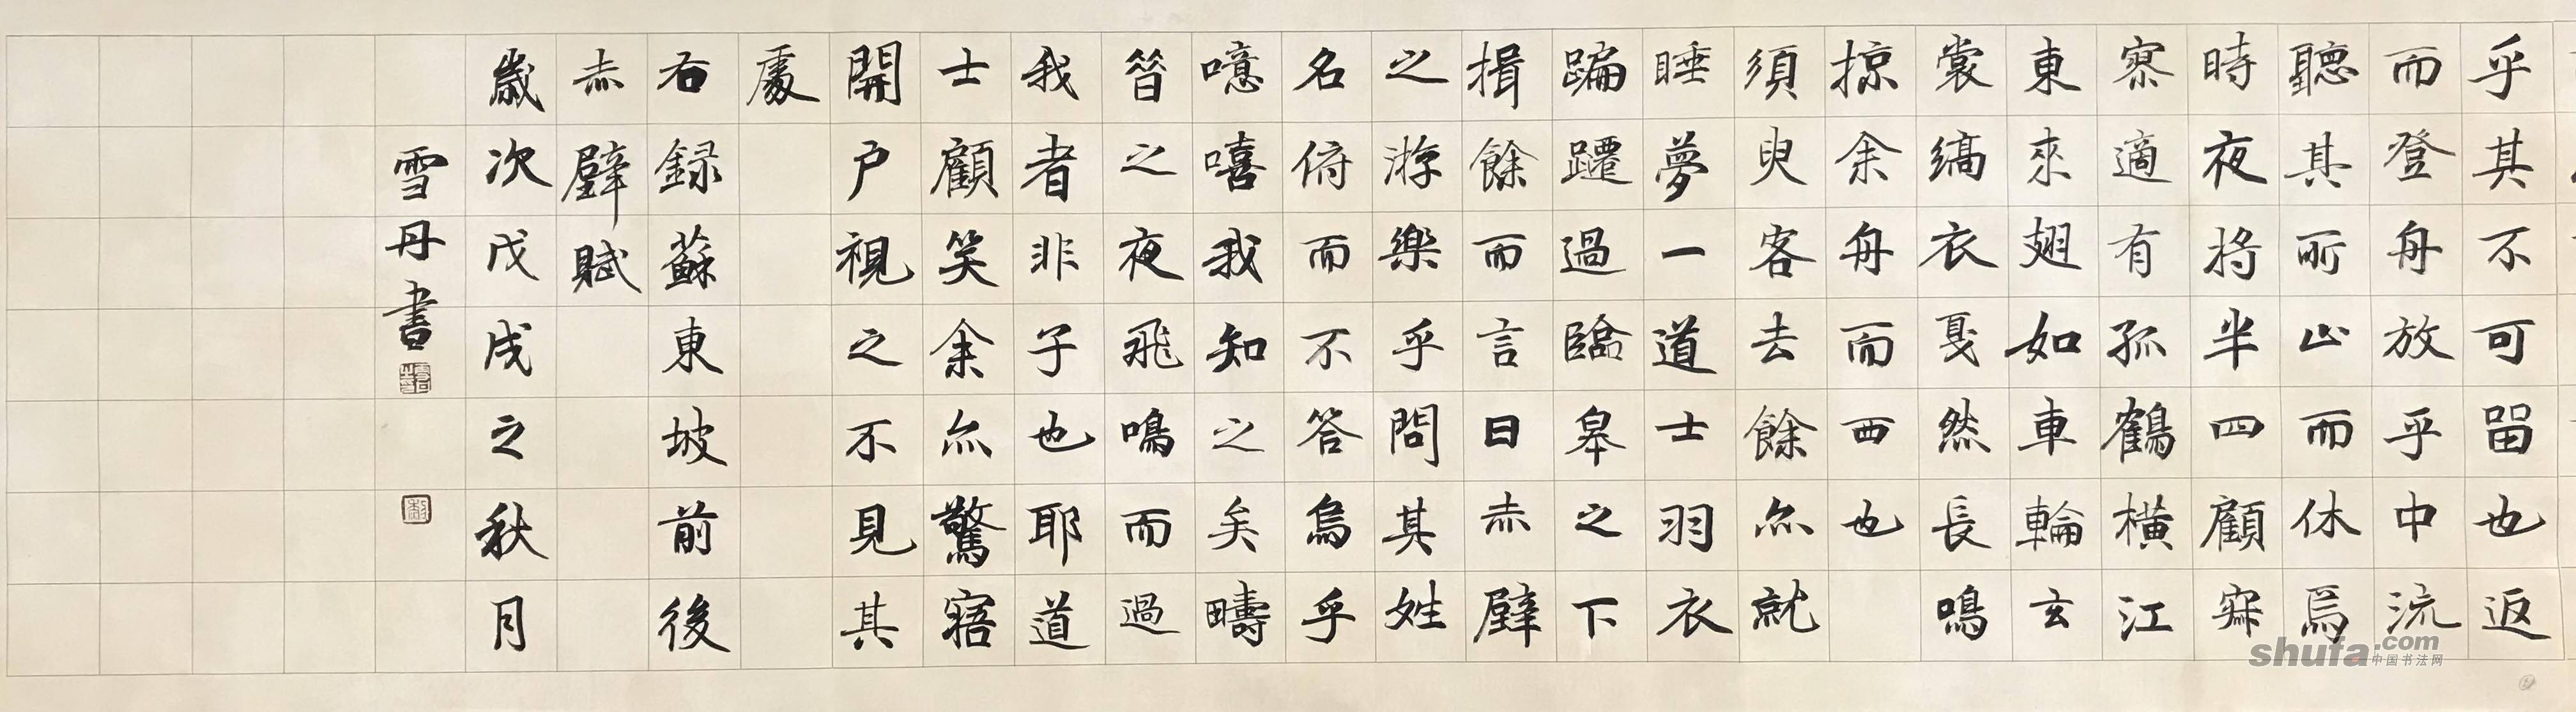 乎其不可留也返
而登舟放乎中流
聽其所止而休焉
時夜將半四顧寂
寥適有孤鶴橫江
東來翅如車輪玄
裳縞衣戛然長鳴
掠余舟而西也
須臾客去余亦就
睡夢一道士羽衣
蹁躚過臨皋之下
揖余而言曰赤壁
之游樂乎問其姓
名俯而不答嗚乎
噫嘻我知之矣疇
昔之夜飛鳴而過
我者非子也耶道
士顧笑余亦驚寤
開戶視之不見其
處
右録蘇東坡前後
赤壁賦
歲次戊戌之秋月
雪丹書
shufa.com
中国书法网